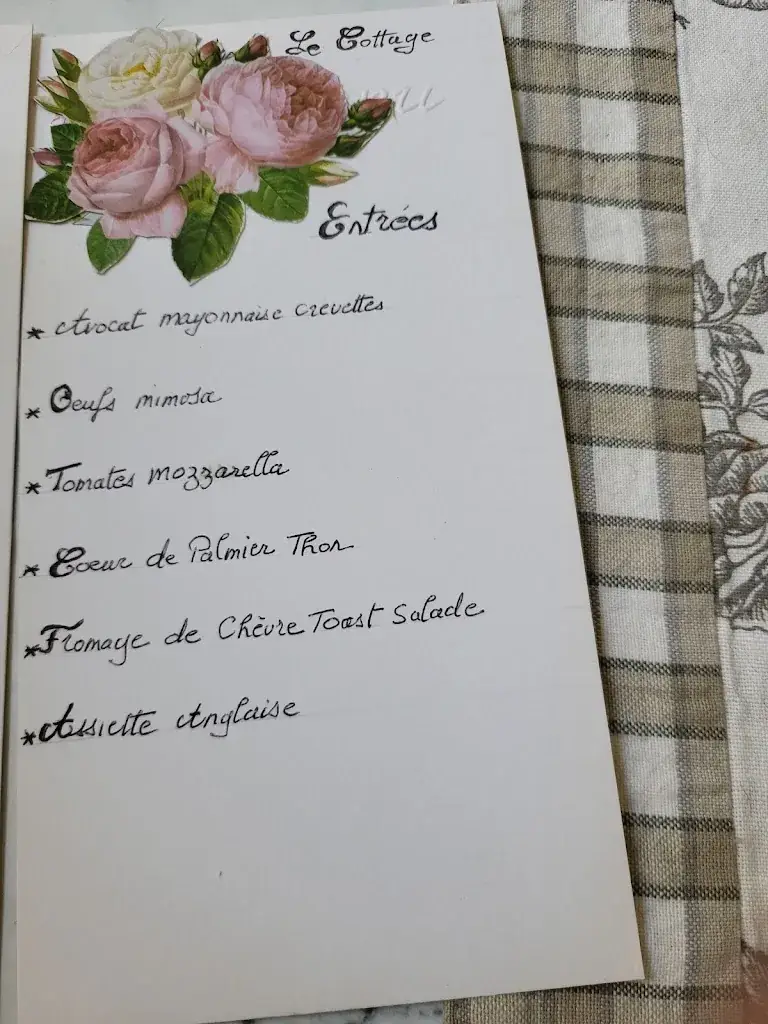 Le Cottage
Entrées
* Avocat mayonnaise crevettes
* Oeufs mimosa
* Tomates mozzarella
* Coeur de Palmier Thon
* Fromage de Chèvre Toast Salade
* Assiette Anglaise